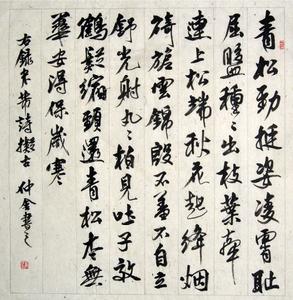 青松勁挺姿凌霄恥
屈盤種々出枝葉牽
連上松端秋花起絳烟
旖旎雲錦殷不羞不自立
舒光射丸々柏見吐子效
鶴縮頭還青松本無
華安得保歲寒
右錄米芾詩擬古 仲金書之